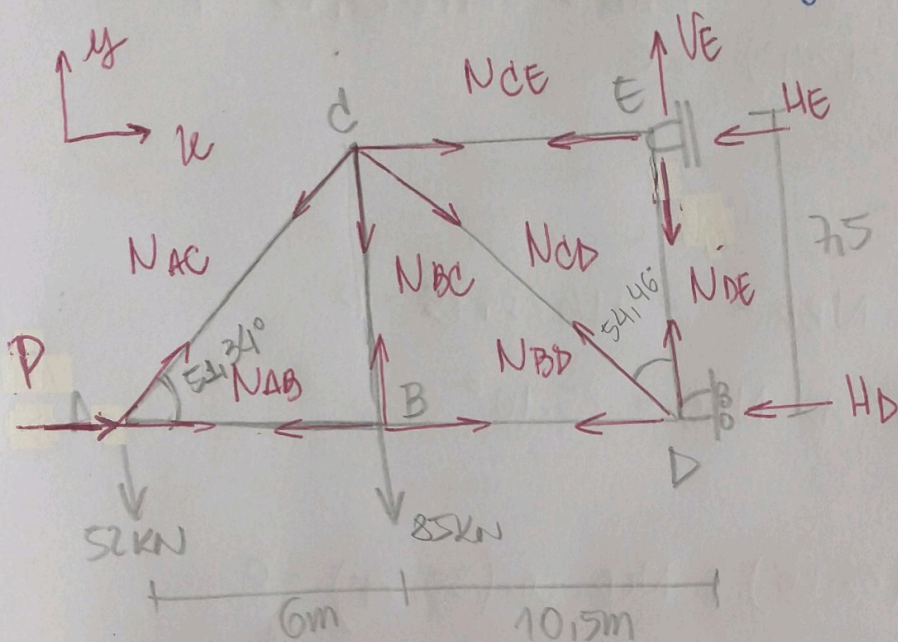 y
x
C
NCE
E
VE
HE
7,5
NAC
NBC
NCD
NDE
54,46°
P
A
51,34°
NAB
B
NBD
HD
D
52KN
85KN
6m
10,5m